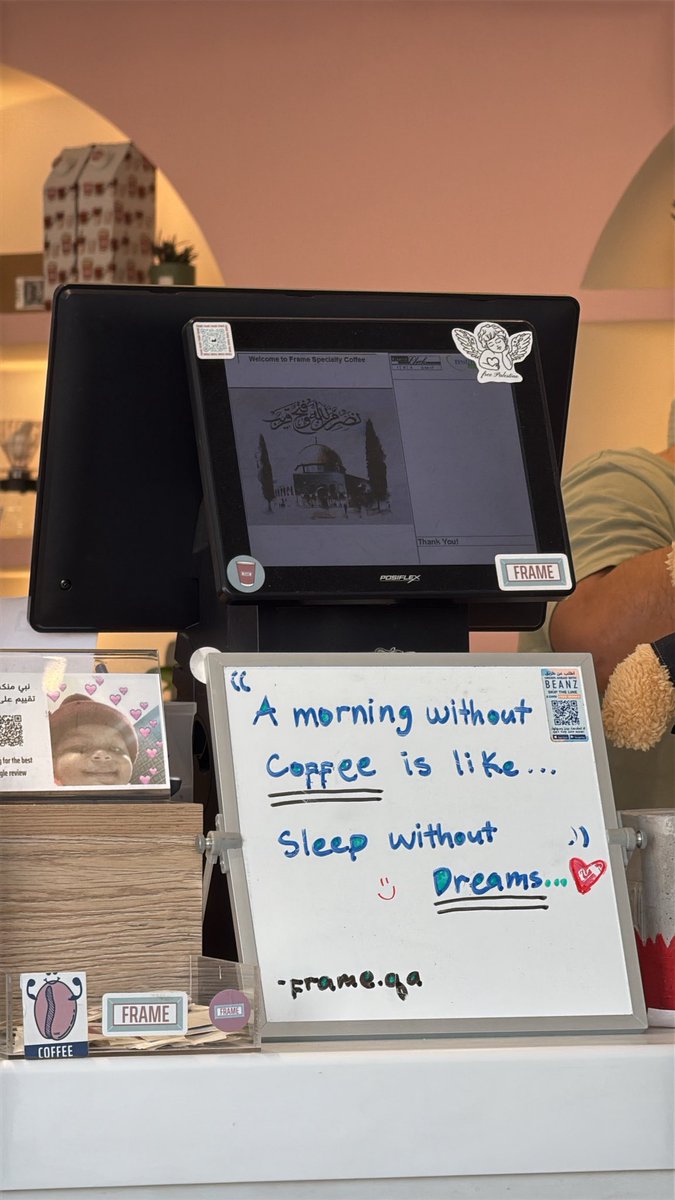 Welcome to Frame Specialty Coffee
نصر من الله وفتح قريب
free Palestine
Thank You!
POSIFLEX
FRAME
نبي منك
تقييم على
g for the best
gle review
“
A morning without
Coffee is like...
Sleep without
Dreams...
-Frame.qa
BEANZ
SKIP THE LINE
FRAME
FRAME
COFFEE